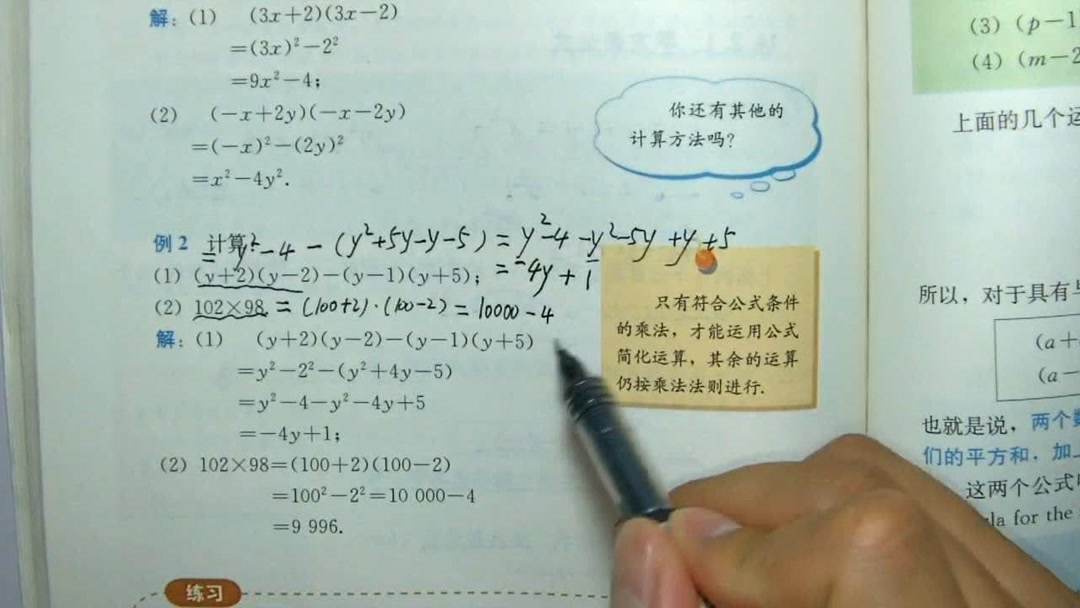 解：(1) (3x+2)(3x-2)
=(3x)²-2²
=9x²-4；
(2) (-x+2y)(-x-2y)
=(-x)²-(2y)²
=x²-4y².
你还有其他的
计算方法吗？
例2 计算：
= y²-4-(y²+5y-y-5)=y²-4-y²-5y+y+5
(1) (y+2)(y-2)-(y-1)(y+5)；
=-4y+1
(2) 102×98
=(100+2)·(100-2)=10000-4
解：(1) (y+2)(y-2)-(y-1)(y+5)
=y²-2²-(y²+4y-5)
=y²-4-y²-4y+5
=-4y+1；
(2) 102×98=(100+2)(100-2)
=100²-2²=10 000-4
=9 996.
只有符合公式条件
的乘法，才能运用公式
简化运算，其余的运算
仍按乘法法则进行.
练习
(3) (p-1
(4) (m-2
上面的几个运
所以，对于具有与
(a+
(a-
也就是说，两个数
们的平方和，加上
这两个公式
la for the